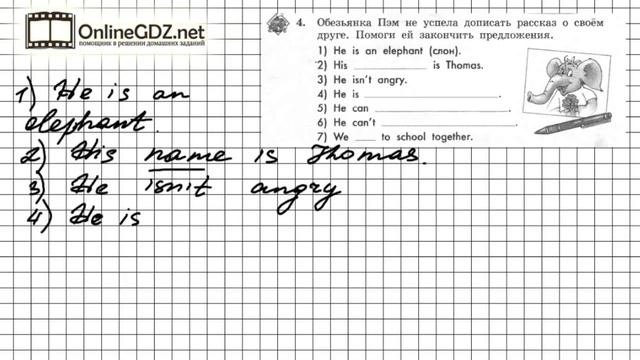 OnlineGDZ.net
помощник в решении домашних заданий
4. Обезьянка Пэм не успела дописать рассказ о своём
друге. Помоги ей закончить предложения.
1) He is an elephant (слон).
2) His ________ is Thomas.
3) He isn't angry.
4) He is ________.
5) He can ________.
6) He can't ________.
7) We ____ to school together.
1) He is an
elephant.
2) His name is Thomas.
3) He isn't angry
4) He is